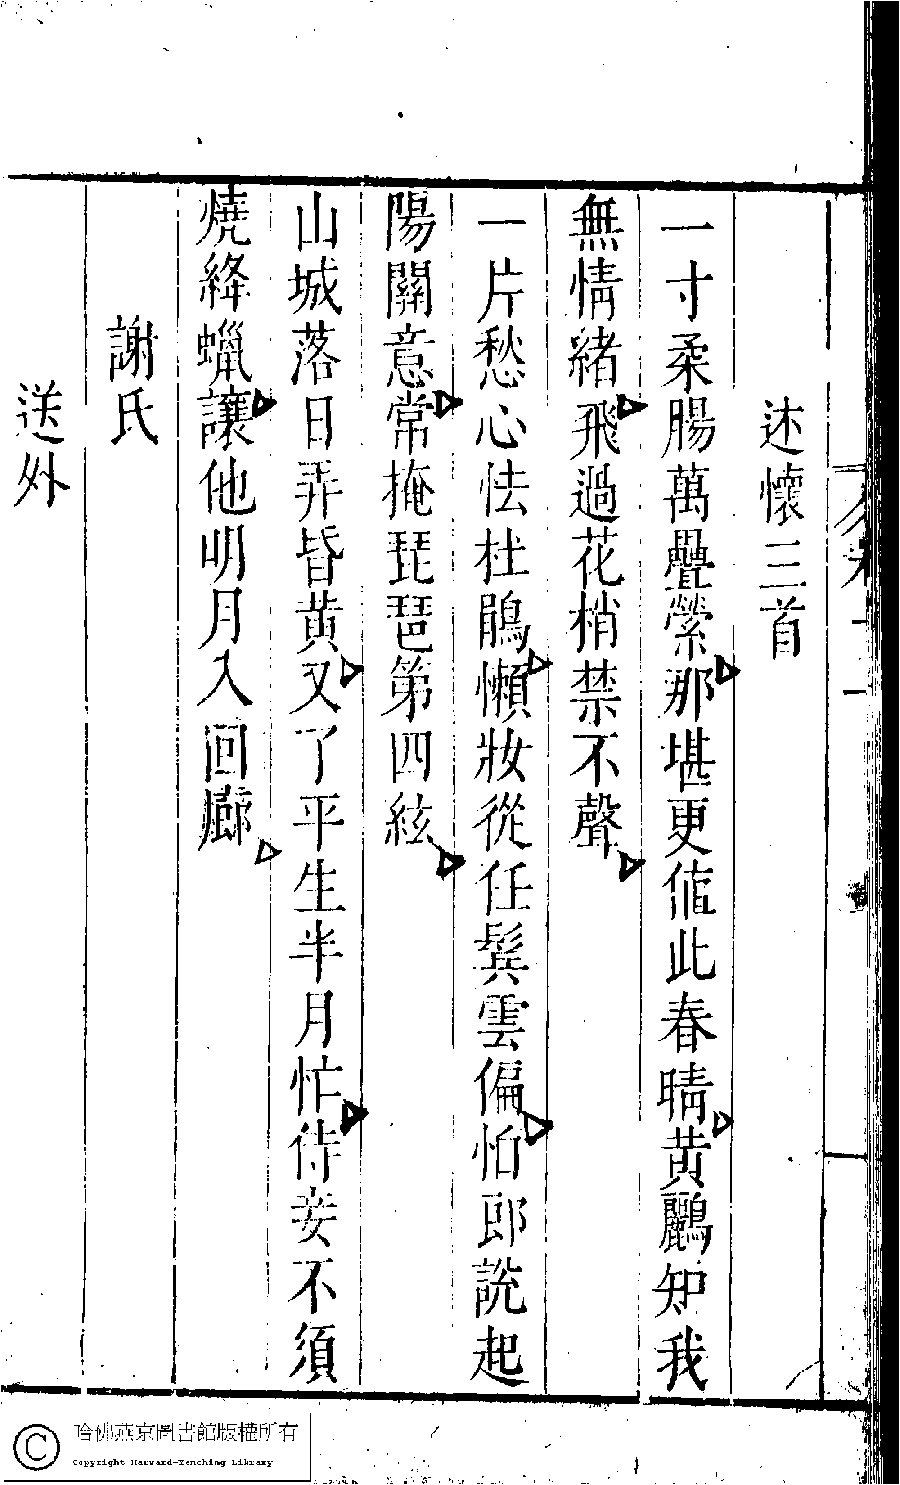 述懷三首
一寸柔腸萬疊縈那堪更値此春晴黄鸝知我
無情緒飛過花梢禁不聲
一片愁心怯杜鵑懶妝從任鬂雲偏怕郎說起
陽關意常掩琵琶第四絃
山城落日弄昏黄又了平生半月忙侍妾不須
燒絳蠟讓他明月入回廊
謝氏
送外
哈佛燕京圖書館版權所有
Copyright Harvard-Yenching Library